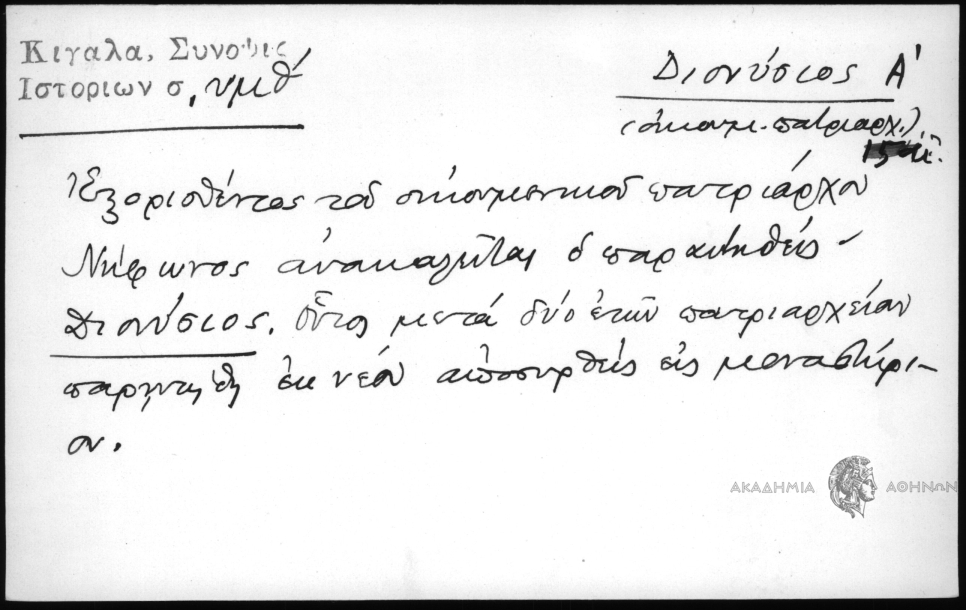 Κιγαλα, Συνοψις
Ιστοριων σ, υμθ́
Διονύσιος Α'
(οἰκουμ. πατριαρχ.)
Ἐξορισθέντος τοῦ οἰκουμενικοῦ πατριάρχου
Νήφωνος ἀνακαλεῖται ὁ παραιτηθείς
Διονύσιος. Οὗτος μετά δύο ἐτῶν πατριαρχείαν
παρῃτήθη ἐκ νέου ἀποσυρθείς εἰς μοναστήρι-
ον.
ΑΚΑΔΗΜΙΑ ΑΘΗΝΩΝ